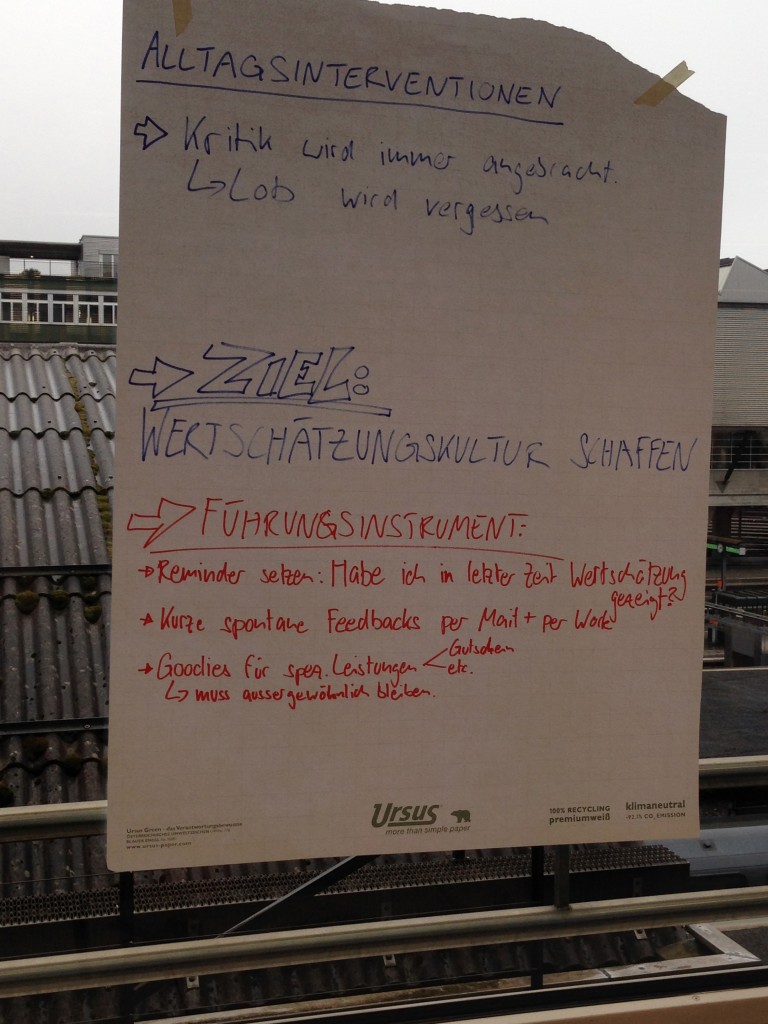 ALLTAGSINTERVENTIONEN
⇨ Kritik wird immer angebracht.
↳ Lob wird vergessen
⇨ ZIEL:
WERTSCHÄTZUNGSKULTUR SCHAFFEN
⇨ FÜHRUNGSINSTRUMENT:
→ Reminder setzen: Habe ich in letzter Zeit Wertschätzung
gezeigt?
→ Kurze spontane Feedbacks per Mail + per Work
→ Goodies für spez. Leistungen < Gutschein
etc.
↳ muss aussergewöhnlich bleiben.
Ursus
more than simple paper
100% RECYCLING
premiumweiß
klimaneutral
-92,1% CO₂ EMISSION
www.ursus-paper.com